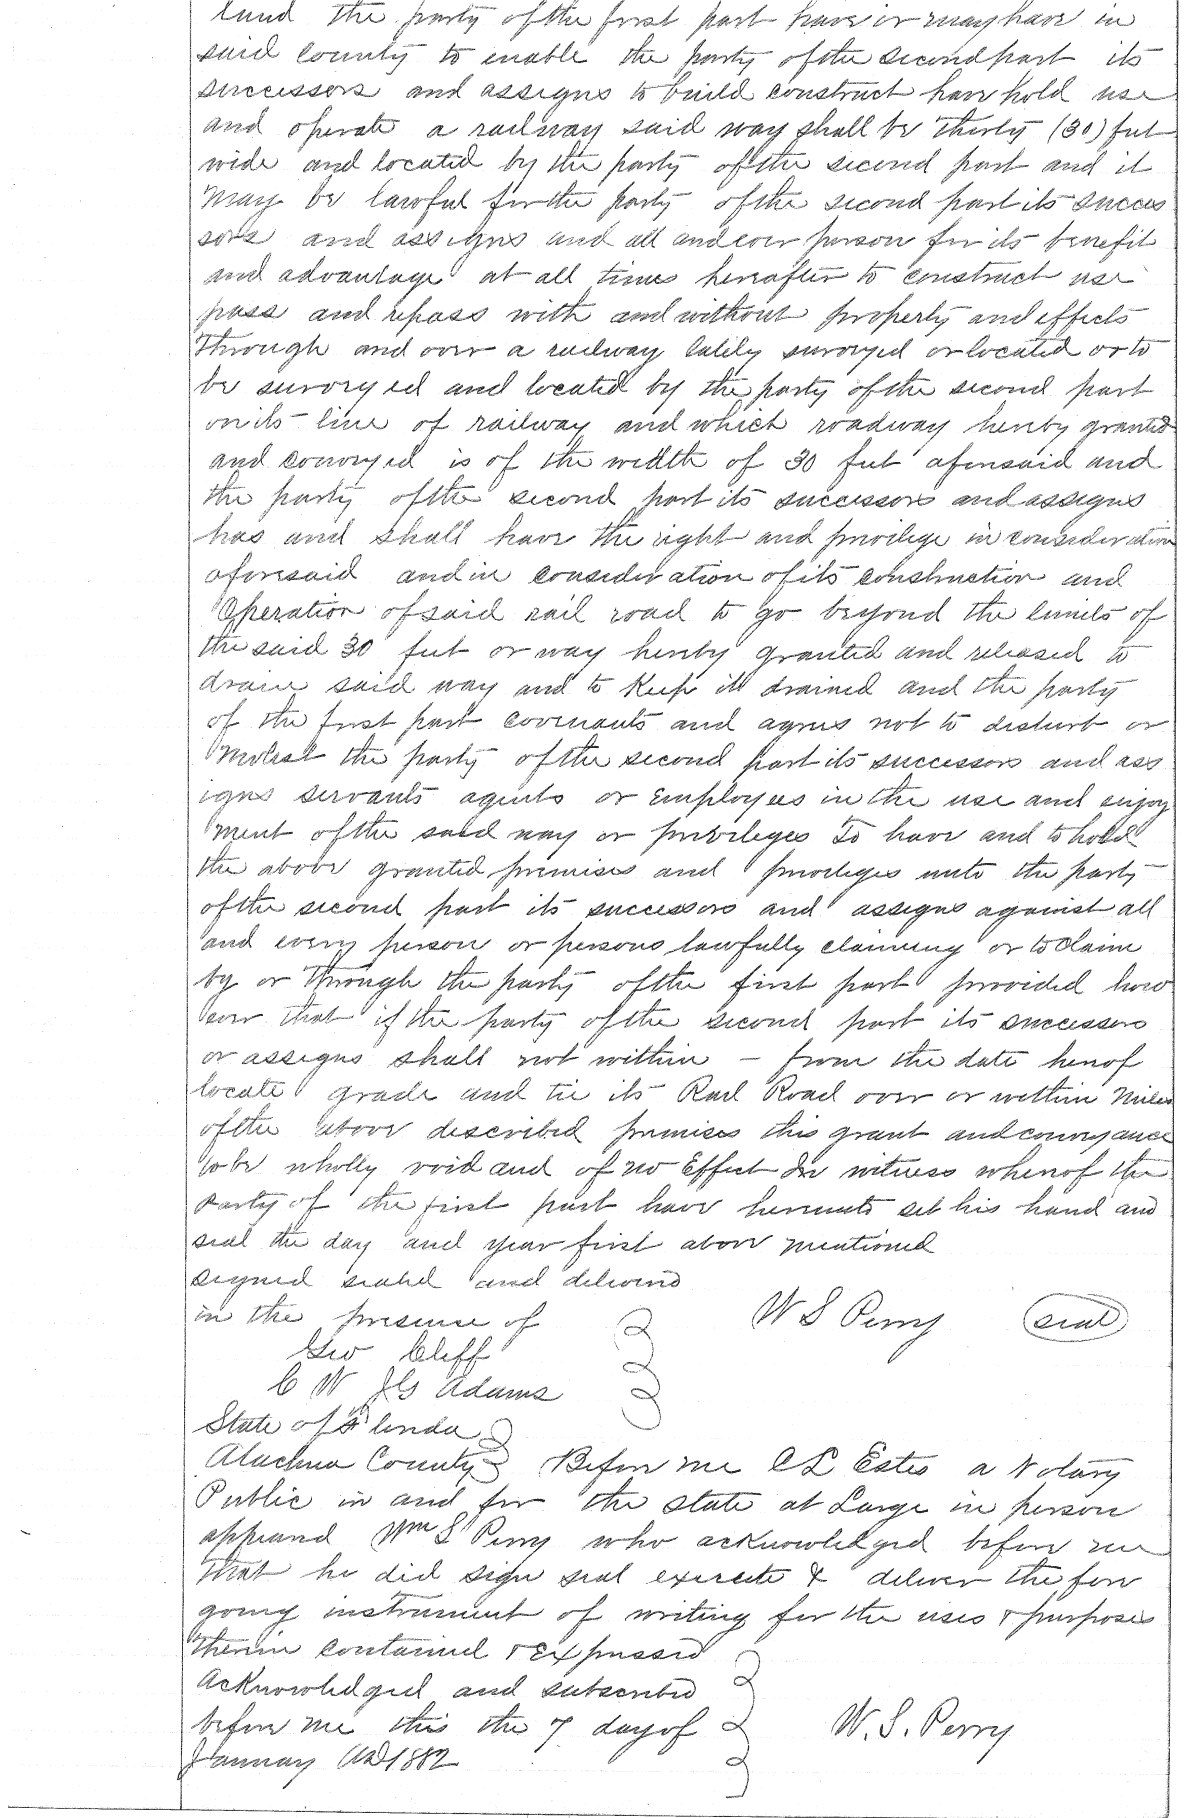 land the party of the first part have or may have in
said county to enable the party of the second part its
successors and assigns to build construct have hold use
and operate a railway said way shall be Thirty (30) feet
wide and located by the party of the second part and it
May be lawful for the party of the second part its succes
sors and assigns and all and ever person for its benefit
and advantage at all times hereafter to construct use
pass and repass with and without property and effects
Through and over a railway lately surveyed or located or to
be surveyed and located by the party of the second part
on its line of railway and which roadway hereby granted
and conveyed is of the width of 30 feet aforesaid and
the party of the second part its successors and assigns
has and shall have the right and privilege in consideration
aforesaid and in consideration of its construction and
Operation of said rail road to go beyond the limits of
the said 30 feet or way hereby granted and released to
drain said way and to Keep it drained and the party
of the first part covenants and agrees not to disturb or
Molest the party of the second part its successors and ass
igns servants agents or Employees in the use and enjoy
ment of the said way or privileges To have and to hold
the above granted premises and privileges unto the party
of the second part its successors and assigns against all
and every person or persons lawfully claiming or to claim
by or Through the party of the first part provided how
ever that if the party of the second part its successors
or assigns shall not within – from the date hereof
locate grade and tie its Rail Road over or within Miles
of the above described premises this grant and conveyance
to be wholly void and of no Effect In witness whereof the
party of the first part have hereunto set his hand and
seal the day and year first above mentioned
signed sealed and delivered
in the presence of W S Perry (seal)
Geo Cliff
C W J G Adams
State of Florida
Alachua County Before me C L Estes a Notary
Public in and for the state at Large in person
appeared Wm S Perry who acknowledged before me
that he did sign seal execute & deliver the fore
going instrument of writing for the uses & purposes
Therein contained & Expressed
Acknowledged and subscribed
before me this the 7 day of W. S. Perry
January AD 1882